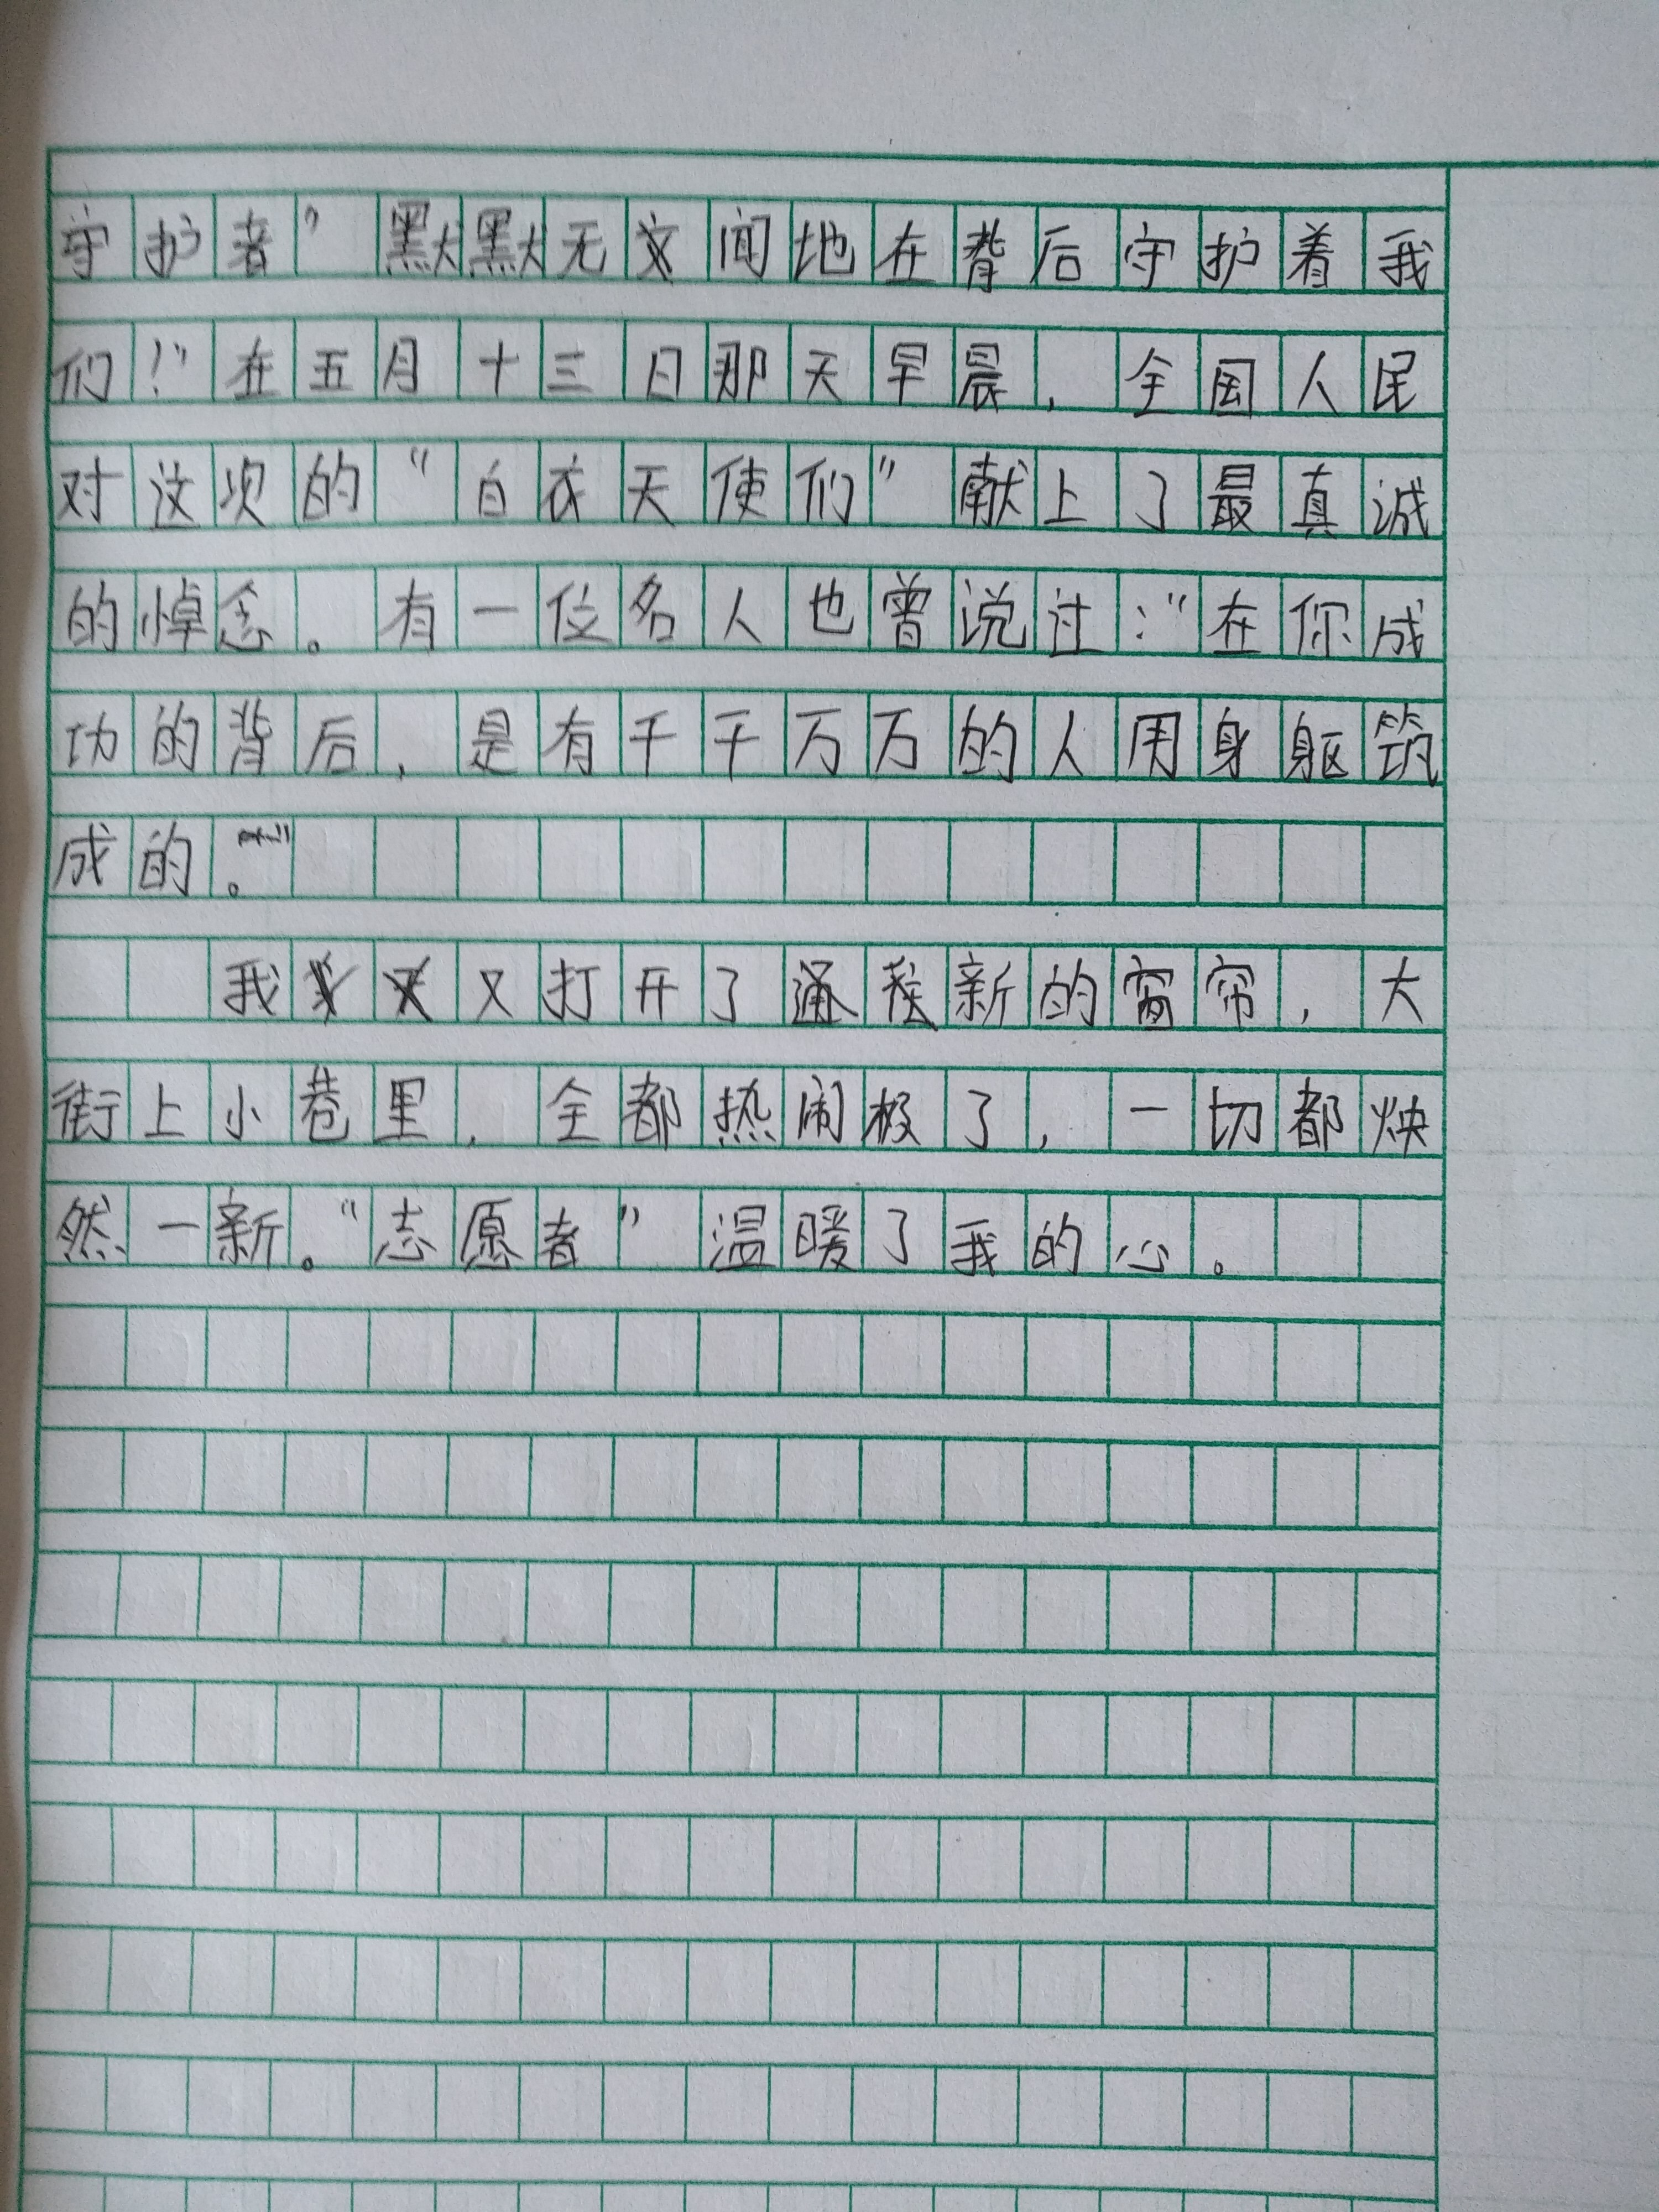 守护者”默默无文闻地在背后守护着我
们！”在五月十三日那天早晨，全国人民
对这次的“白衣天使们”献上了最真诚
的悼念。有一位名人也曾说过：“在你成
功的背后，是有千千万万的人用身躯筑
成的。”
我又打开了新的窗帘，大
街上小巷里，全都热闹极了，一切都焕
然一新。“志愿者”温暖了我的心。